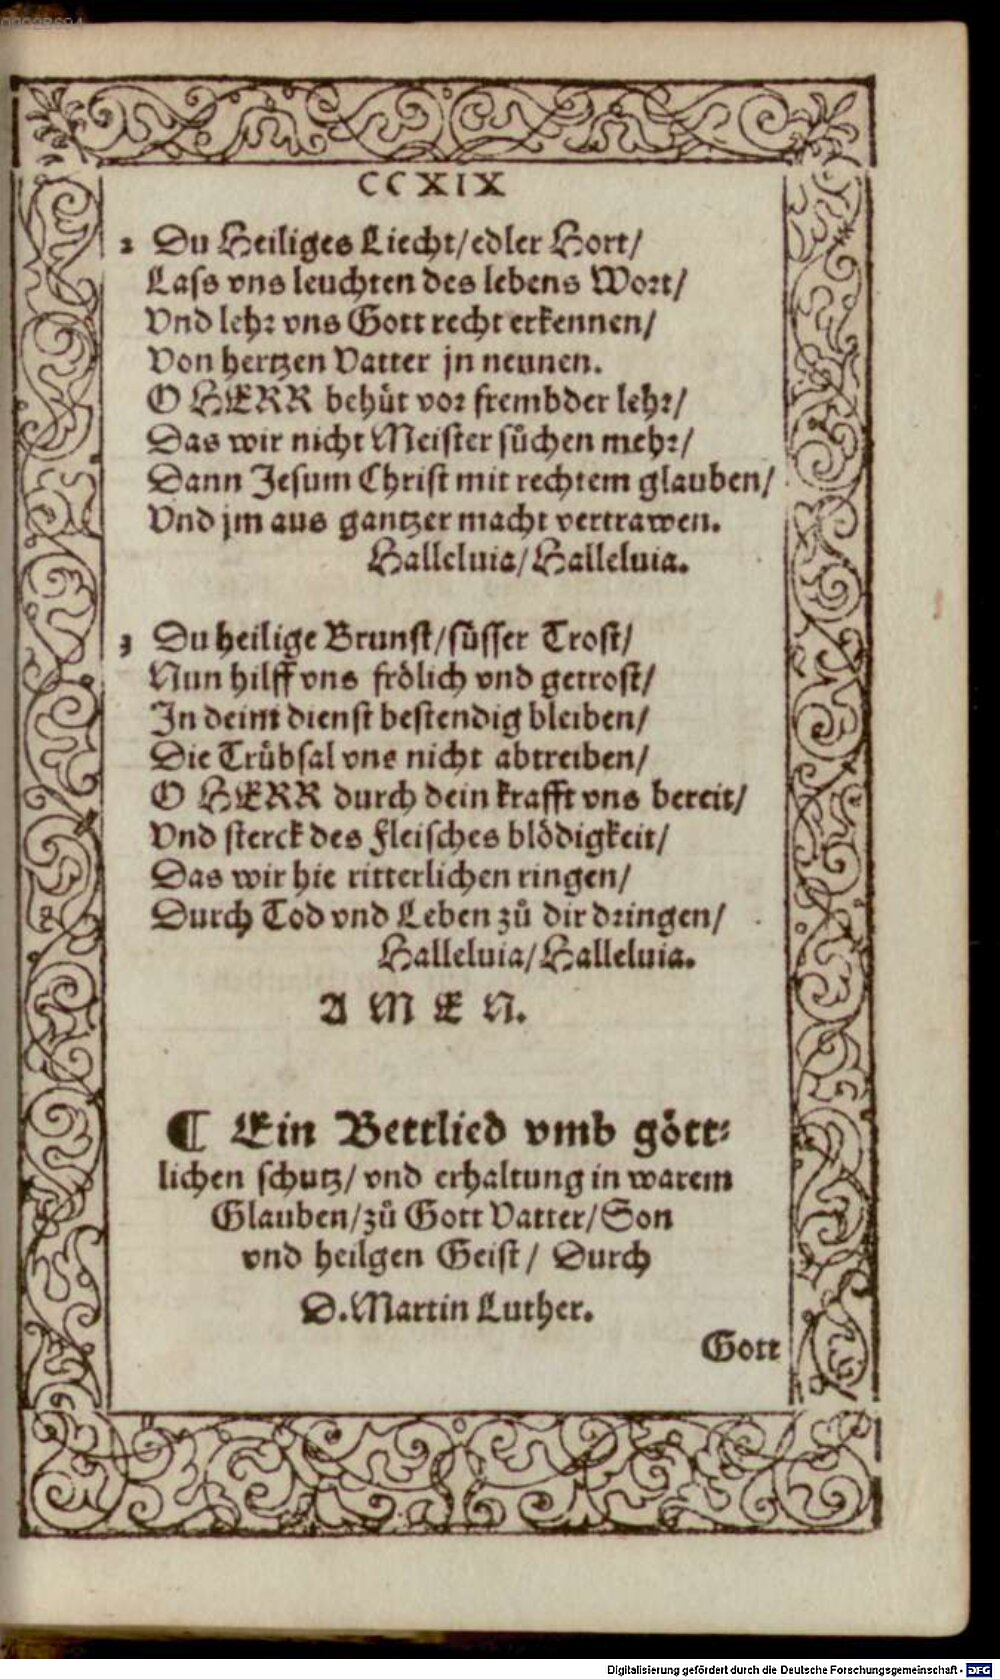 00028694
CCXIX
2 Du Heiliges Liecht/edler Hort/
Lass vns leuchten des lebens Wort/
Vnd lehr vns Gott recht erkennen/
Von hertzen Vatter jn nennen.
O HERR behüt vor frembder lehr/
Das wir nicht Meister sůchen mehr/
Dann Jesum Christ mit rechtem glauben/
Vnd jm aus gantzer macht vertrawen.
Halleluia/Halleluia.
3 Du heilige Brunst/süsser Trost/
Nun hilff vns frölich vnd getrost/
In deim dienst bestendig bleiben/
Die Trübsal vns nicht abtreiben/
O HERR durch dein krafft vns bereit/
Vnd sterck des fleisches blödigkeit/
Das wir hie ritterlichen ringen/
Durch Tod vnd Leben zů dir dringen/
Halleluia/Halleluia.
A M E N.
¶ Ein Bettlied vmb gött⸗
lichen schutz/ vnd erhaltung in warem
Glauben/zů Gott Vatter/Son
vnd heilgen Geist/ Durch
D.Martin Luther.
Gott
Digitalisierung gefördert durch die Deutsche Forschungsgemeinschaft - DFG